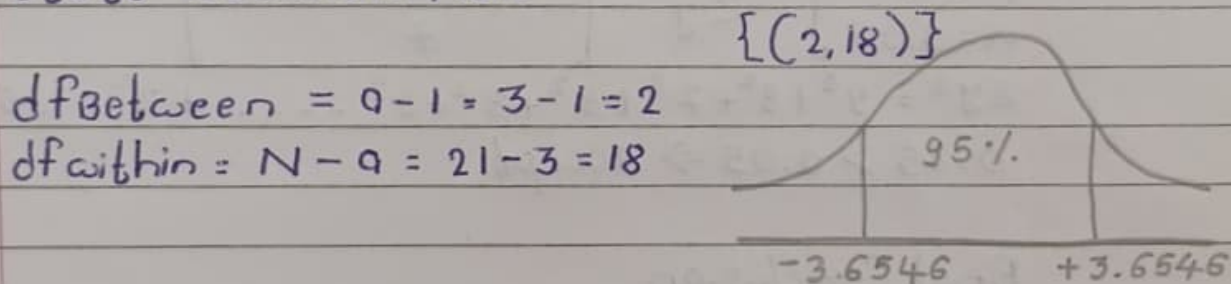 {(2,18)}
dfBetween = a - 1 = 3 - 1 = 2
dfwithin = N - a = 21 - 3 = 18
95%.
-3.6546 +3.6546